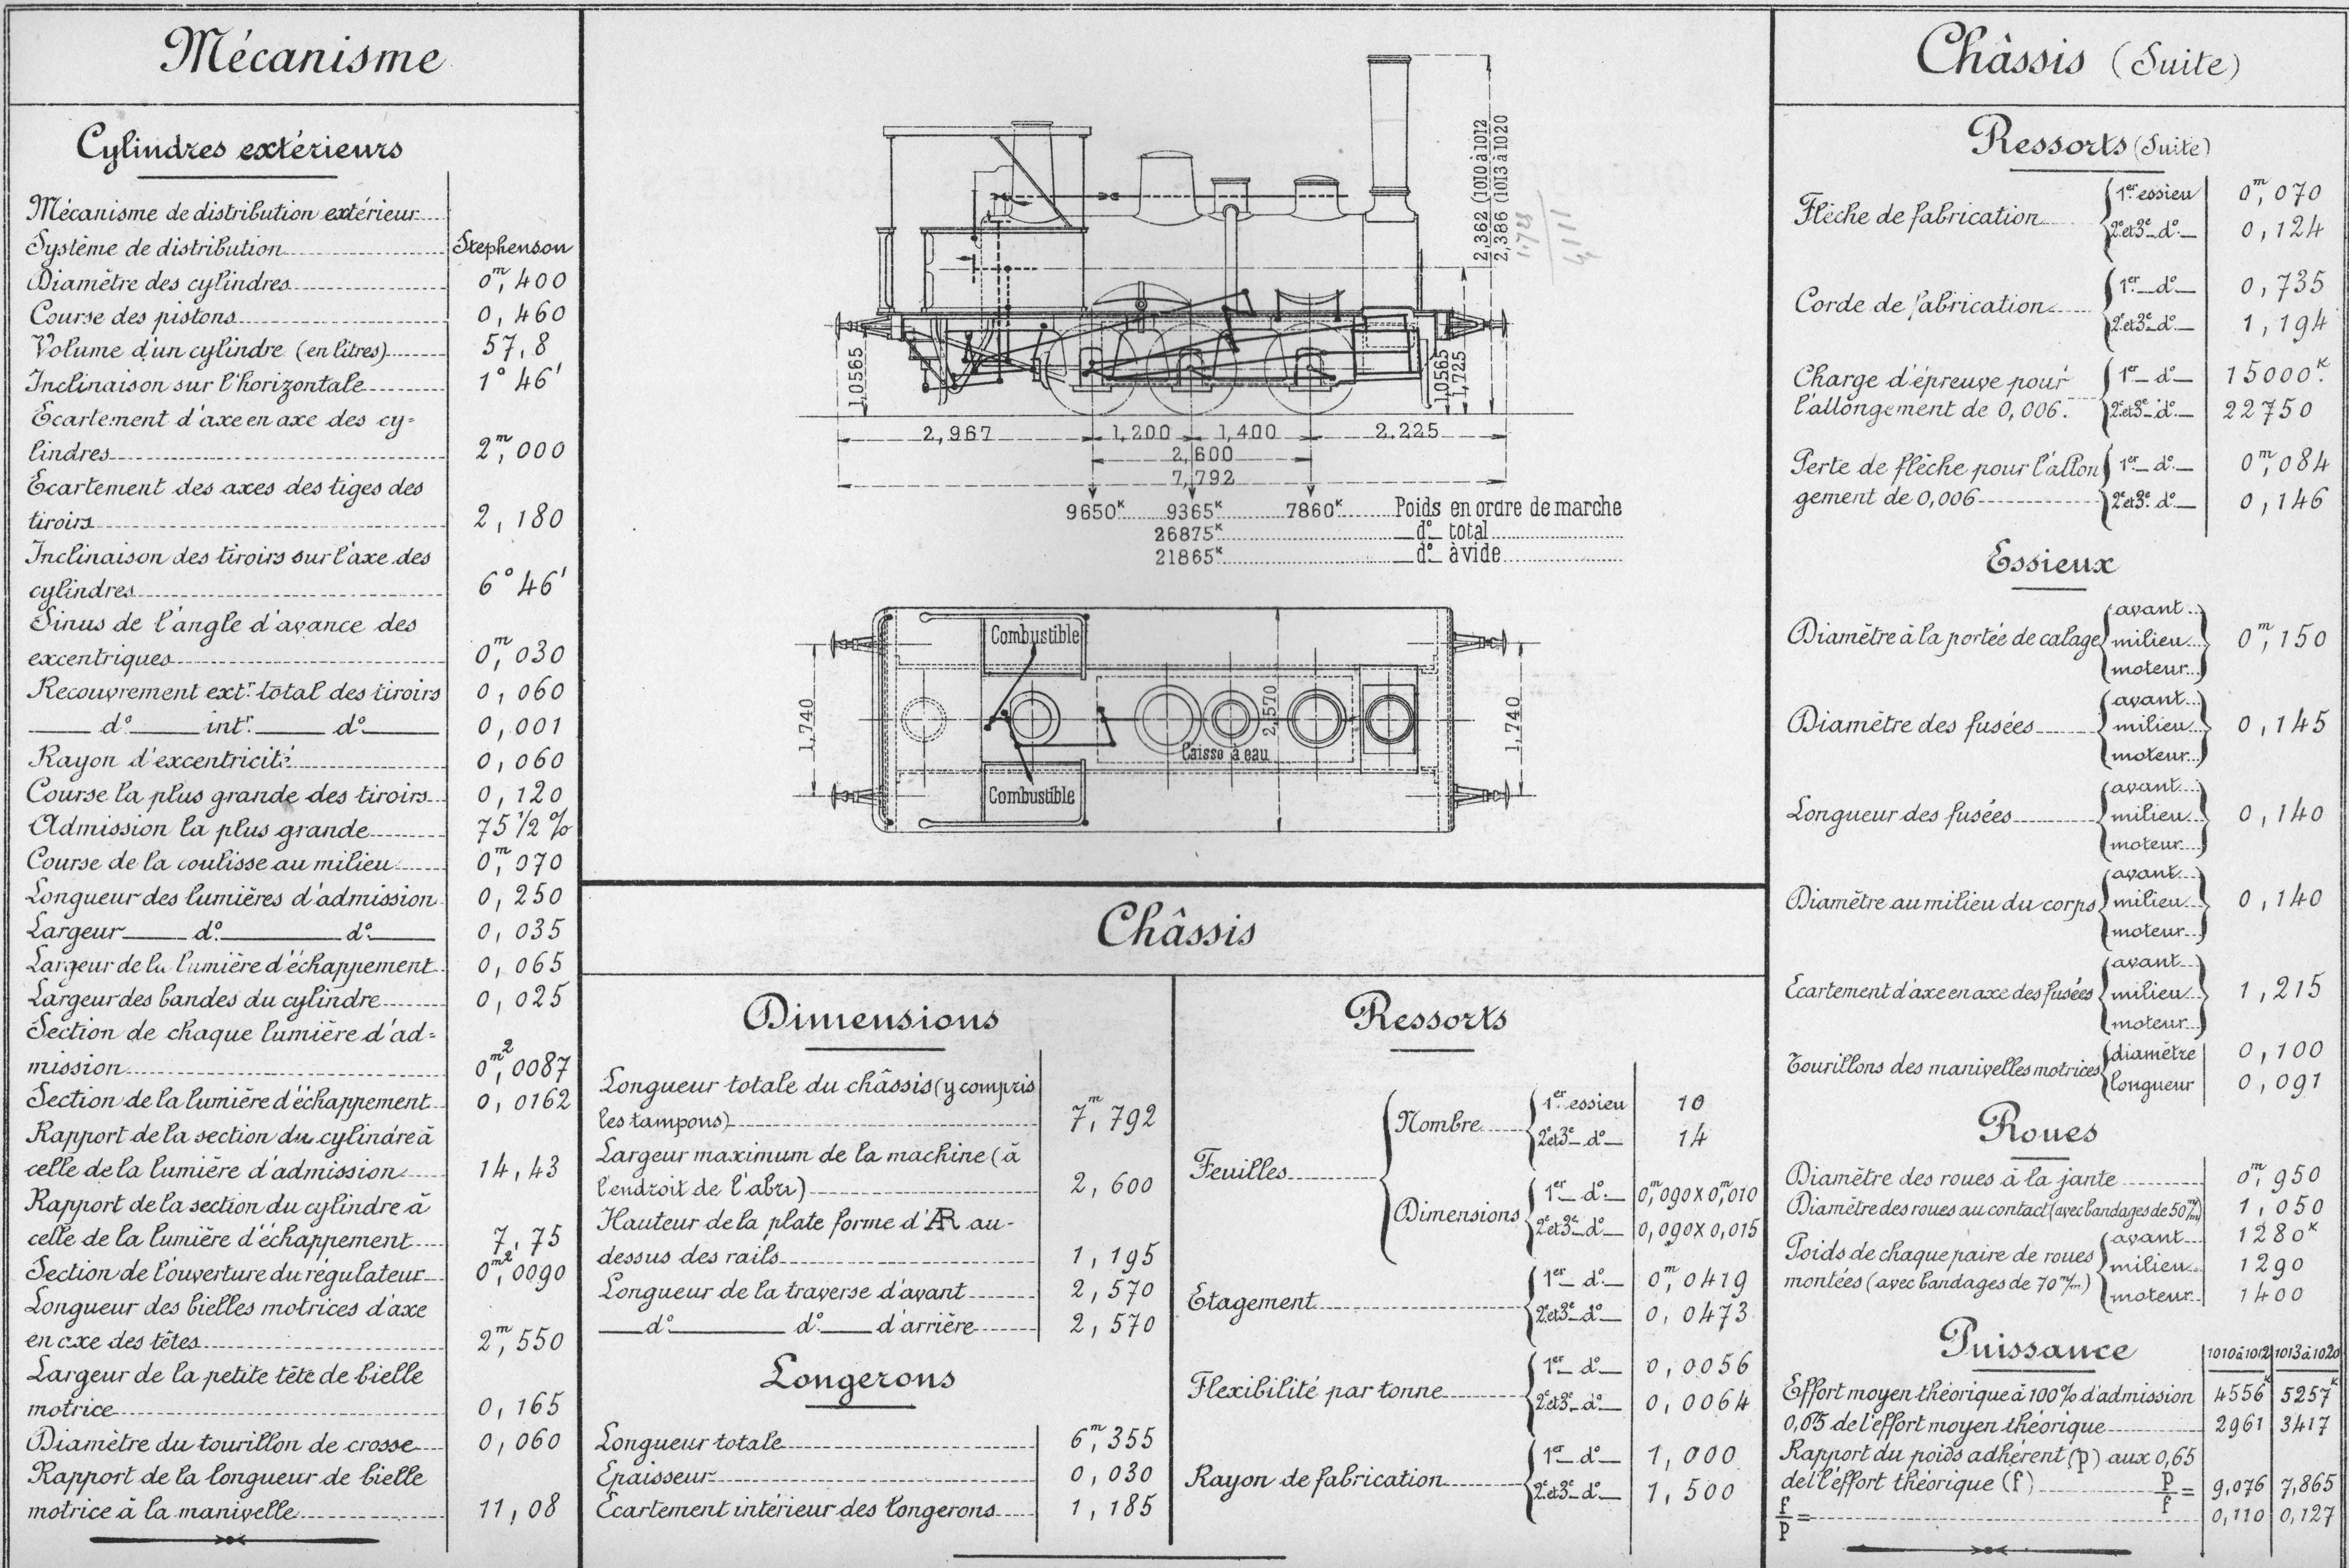 Mécanisme
Cylindres extérieurs
Mécanisme de distribution extérieur
Système de distribution Stephenson
Diamètre des cylindres 0ᵐ,400
Course des pistons 0,460
Volume d'un cylindre (en litres) 57,8
Inclinaison sur l'horizontale 1° 46'
Ecartement d'axe en axe des cy=
lindres 2ᵐ,000
Ecartement des axes des tiges des
tiroirs 2,180
Inclinaison des tiroirs sur l'axe des
cylindres 6° 46'
Sinus de l'angle d'avance des
excentriques 0ᵐ,030
Recouvrement extʳ total des tiroirs 0,060
dº intʳ dº 0,001
Rayon d'excentricité 0,060
Course la plus grande des tiroirs 0,120
Admission la plus grande 75 1/2 %
Course de la coulisse au milieu 0ᵐ,070
Longueur des lumières d'admission 0,250
Largeur dº dº 0,035
Largeur de la lumière d'échappement 0,065
Largeur des bandes du cylindre 0,025
Section de chaque lumière d'ad=
mission 0ᵐ²,0087
Section de la lumière d'échappement 0,0162
Rapport de la section du cylindre à
celle de la lumière d'admission 14,43
Rapport de la section du cylindre à
celle de la lumière d'échappement 7,75
Section de l'ouverture du régulateur 0ᵐ²,0090
Longueur des bielles motrices d'axe
en axe des têtes 2ᵐ,550
Largeur de la petite tête de bielle
motrice 0,165
Diamètre du tourillon de crosse 0,060
Rapport de la longueur de bielle
motrice à la manivelle 11,08
2,362 (1010 à 1012
2,386 (1013 à 1020
1.728
4,111
1,0565
1,0565
1,725
2,967 1,200 1,400 2.225
2,600
7,792
9650ᴷ 9365ᴷ 7860ᴷ Poids en ordre de marche
26875ᴷ dº total
21865ᴷ dº à vide
Combustible
1,740
2,570
1,740
Caisse à eau
Combustible
Châssis
Dimensions
Longueur totale du châssis (y compris
les tampons) 7ᵐ,792
Largeur maximum de la machine (à
l'endroit de l'abri) 2,600
Hauteur de la plate forme d'AR au-
dessus des rails 1,195
Longueur de la traverse d'avant 2,570
dº dº d'arrière 2,570
Longerons
Longueur totale 6ᵐ,355
Epaisseur 0,030
Ecartement intérieur des longerons 1,185
Ressorts
Feuilles
Nombre
1ᵉʳ essieu 10
2ᵉ et 3ᵉ dº 14
Dimensions
1ᵉʳ dº 0ᵐ,090 x 0ᵐ,010
2ᵉ et 3ᵉ dº 0,090 x 0,015
Etagement
1ᵉʳ dº 0ᵐ,0419
2ᵉ et 3ᵉ dº 0,0473
Flexibilité par tonne
1ᵉʳ dº 0,0056
2ᵉ et 3ᵉ dº 0,0064
Rayon de fabrication
1ᵉʳ dº 1,000
2ᵉ et 3ᵉ dº 1,500
Châssis (Suite)
Ressorts (Suite)
Flèche de fabrication
1ᵉʳ essieu 0ᵐ,070
2ᵉ et 3ᵉ dº 0,124
Corde de fabrication
1ᵉʳ dº 0,735
2ᵉ et 3ᵉ dº 1,194
Charge d'épreuve pour 1ᵉʳ dº 15000ᴷ
l'allongement de 0,006. 2ᵉ et 3ᵉ dº 22750
Perte de flèche pour l'allon 1ᵉʳ dº 0ᵐ,084
gement de 0,006 2ᵉ et 3ᵉ dº 0,146
Essieux
avant
Diamètre à la portée de calage milieu 0ᵐ,150
moteur
avant
Diamètre des fusées milieu 0,145
moteur
avant
Longueur des fusées milieu 0,140
moteur
avant
Diamètre au milieu du corps milieu 0,140
moteur
avant
Ecartement d'axe en axe des fusées milieu 1,215
moteur
Tourillons des manivelles motrices
diamètre 0,100
longueur 0,091
Roues
Diamètre des roues à la jante 0ᵐ,950
Diamètre des roues au contact (avec bandages de 50 m/m) 1,050
avant 1280ᴷ
Poids de chaque paire de roues milieu 1290
montées (avec bandages de 70 m/m) moteur 1400
Puissance 1010 à 1012 1013 à 1020
Effort moyen théorique à 100% d'admission 4556ᴷ 5257ᴷ
0,65 de l'effort moyen théorique 2961 3417
Rapport du poids adhérent (p) aux 0,65
de l'effort théorique (f) p/f = 9,076 7,865
f/p = 0,110 0,127